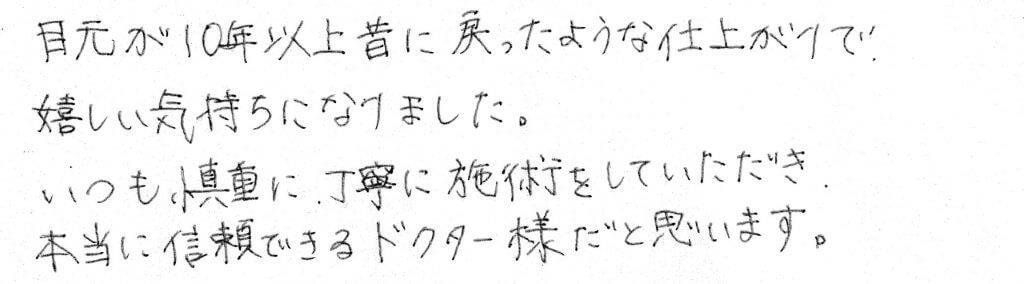 目元が10年以上昔に戻ったような仕上がりで
嬉しい気持ちになりました。
いつも慎重に、丁寧に施術をしていただき、
本当に信頼できるドクター様だと思います。